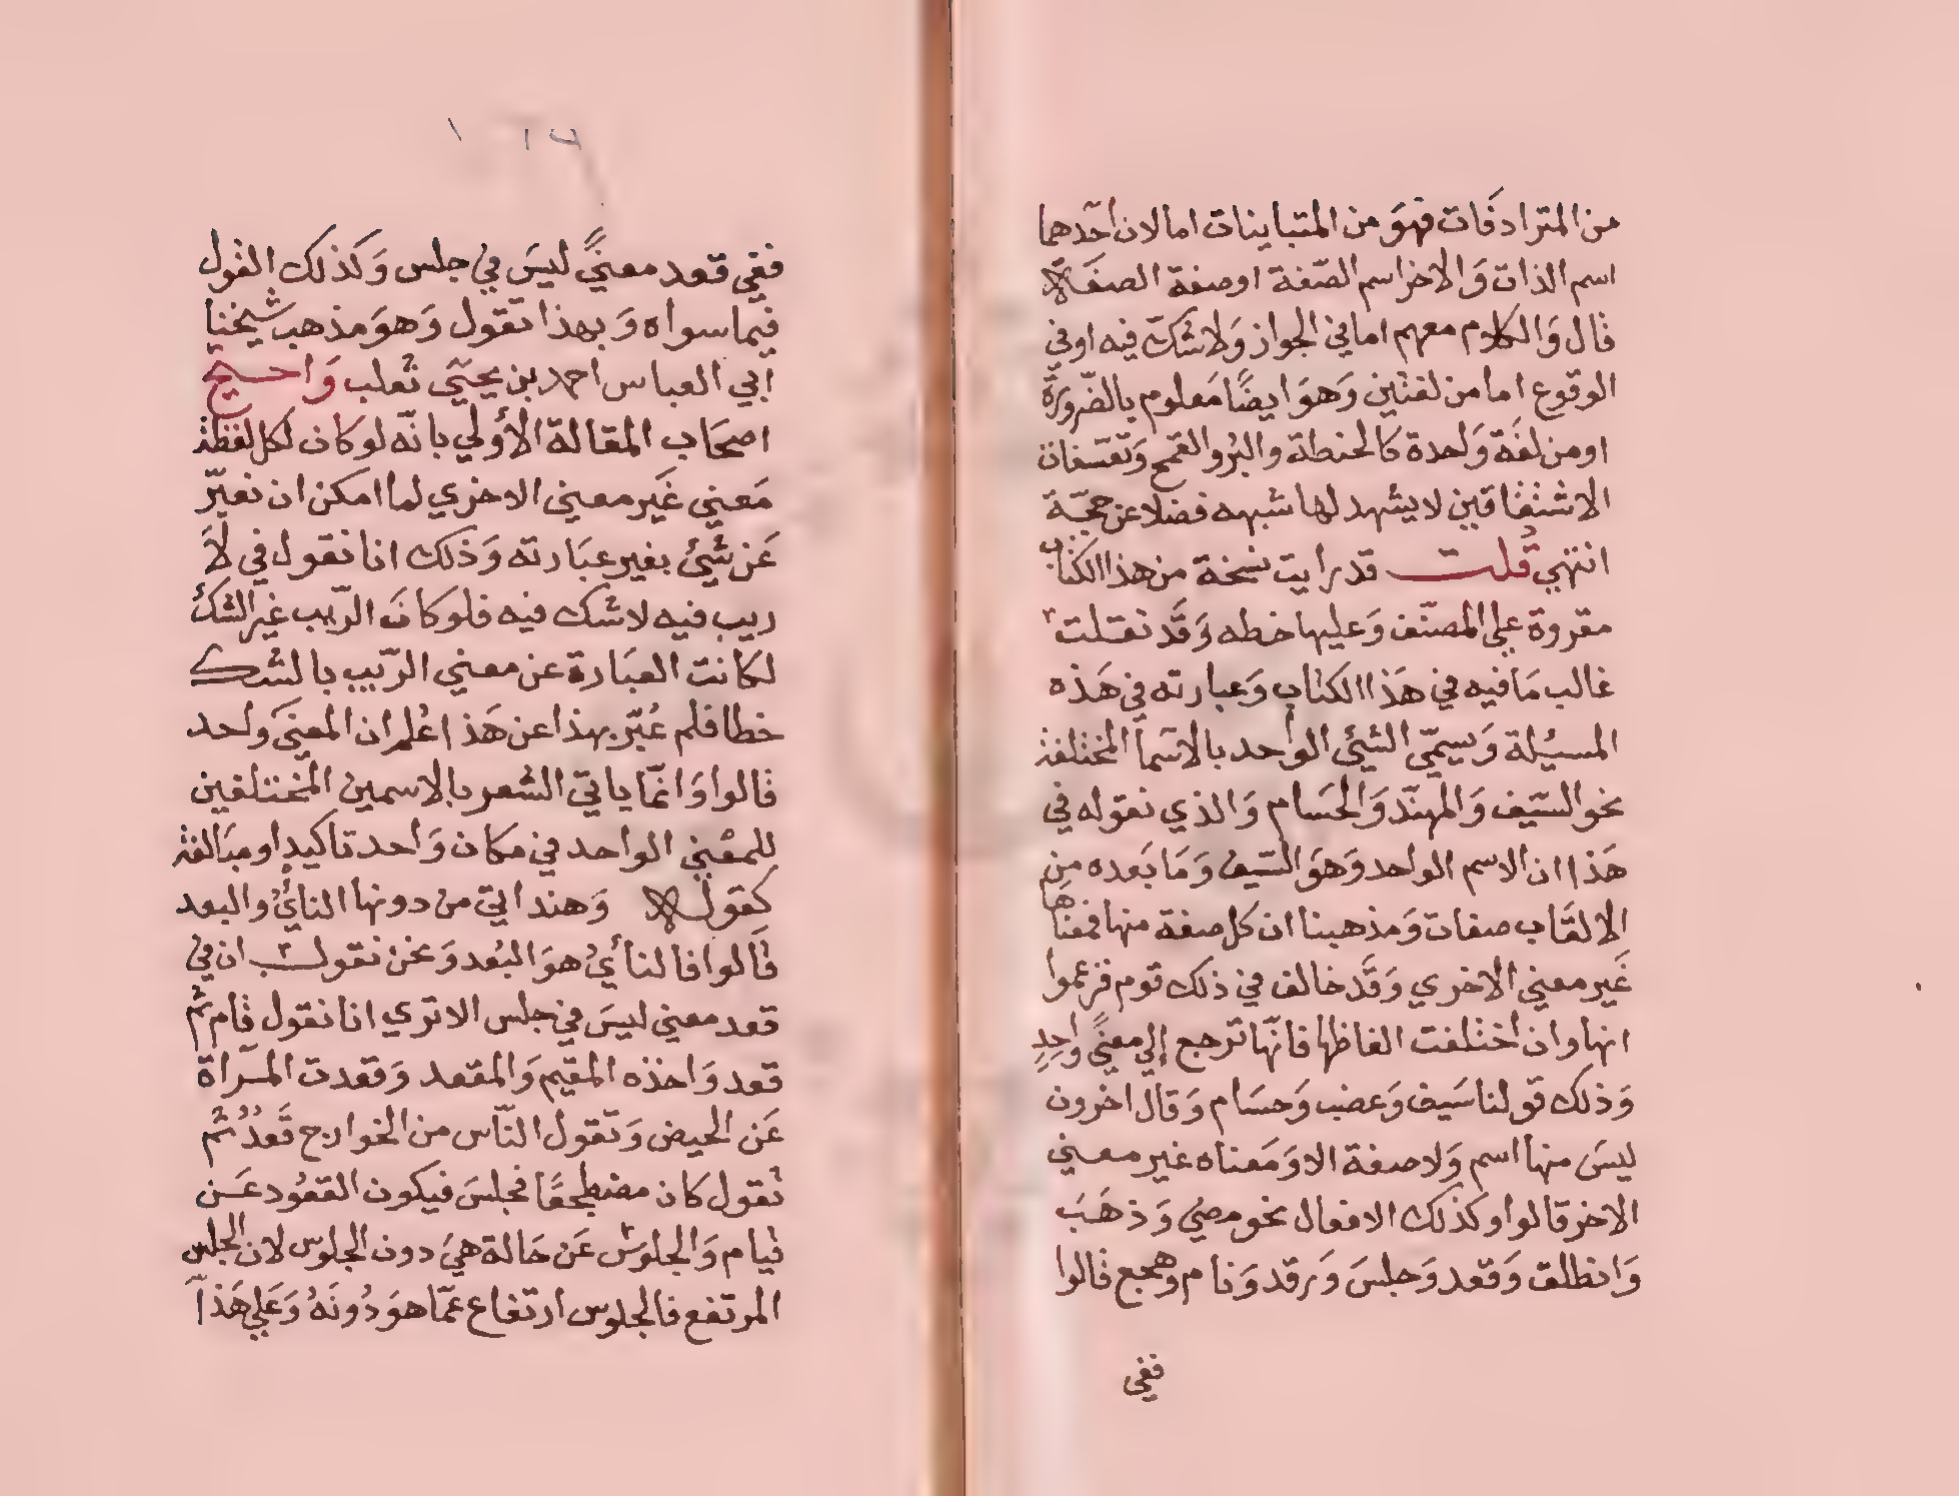 من المترادفات فهوَ من المتباينات اما لان احَدهما
اسم الذات وَالاخر اسم الصّفة او صفة الصفَة
قال وَالكلام معهم اما في الجواز وَلا شكّ فيه او في
الوقوع اما من لغتين وَهوَ ايضًا مَعلوم بالضّرورَة
او من لغَة وَاحدة كالحنطة والبُر والقمح وَتعَسّفات
الاشتقاقين لا يشهد لها شبهه فضلا عن حجّة
انتهي قُلت قد رايت نسخة من هذا الكتاب
مقروة علي المصنّف وَعليها خطه وَقَد نقلت
غالب مَا فيه في هَذا الكتاب وَعبارته في هَذه
المسئلة وَيسمّي الشئ الواحد بالاسَما المختلفة
نحو السّيَف وَالمهنّد وَالحسَام وَالذي نقوله في
هَذا ان الاسم الواحد وَهوَ السّيف وَمَا بَعده من
الالقَاب صفات وَمذهبنا ان كل صفة منها فمعناها
غَير معني الاخري وَقَد خالف في ذلك قوم فزعموا
انها وان اختلفت الفاظها فانّها تَرجع إلي معنًي وَاحِدٍ
وَذلك قولنا سَيف وَعضب وَحسَام وَقال اخرون
ليسَ منها اسم وَلا صفة الا وَمَعناه غير معني
الاخر قالوا وكذلك الافعال نحو مضي وَذهَبَ
وَانطلق وَقعد وَجلسَ وَرقد وَنام وهجع قالوا
ففي
ففي قعد معنيً ليسَ في جلس وَكذلك القول
فيما سواه وَبهذا نقول وَهوَ مذهب شيخنا
ابي العباس احمد بن يحيَي ثعلب وَاحتج
اصحَاب المقالة الأولي بانّه لو كان لكل لفظة
مَعني غَير معني الاخري لما امكن ان نعبّر
عَن شَئ بغير عبَارته وَذلك انا نقول في لَا
ريب فيه لا شك فيه فلو كانَ الرّيب غير الشك
لكانت العبَارة عن معني الرّيب بالشك
خطا فلم عُبّر بهذا عن هَذا عُلم ان المعنيَ واحد
قالوا وَانمّا ياتي الشعر بالاسمين المختلفين
للمعْني الواحد في مكان وَاحد تاكيدٍ او مبَالغة
كقوله وَهند اتي من دونها النائُ والبعد
قَالوا فالنأيُ هوَ البُعد وَنحن نقول ان في
قعد معني ليسَ في جلس الا تري انا نقول قام ثُم
قعد وَاخذه المقيم وَالمقعد وَقعدت المرَاة
عَن الحيض وَنقول الناّس من الخوارج قَعَدٌ ثُم
نقول كان مضطجعًا فجلسَ فيكون القعُود عَن
قيام وَالجلوس عَن حَالة هيَ دون الجلوس لان الجلس
المرتفع فالجلوس ارتفاع عمّا هوَ دُونَهُ وَعَلي هَذا